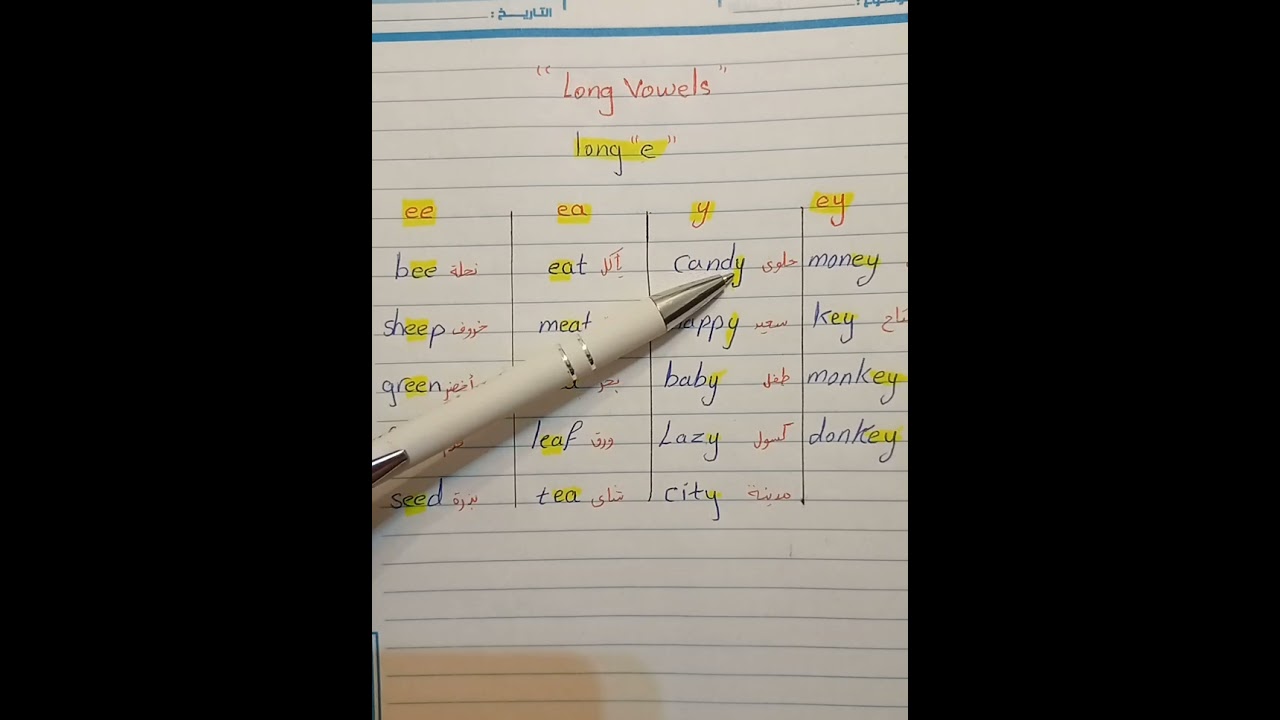 التاريخ :
"Long Vowels"
long "e"
ee ea y ey
bee نحلة eat يأكل candy حلوى money
sheep خروف meat happy سعيد key
green أخضر بحر baby طفل monkey
leaf ورق Lazy كسول donkey
seed بذرة tea شاى city مدينة